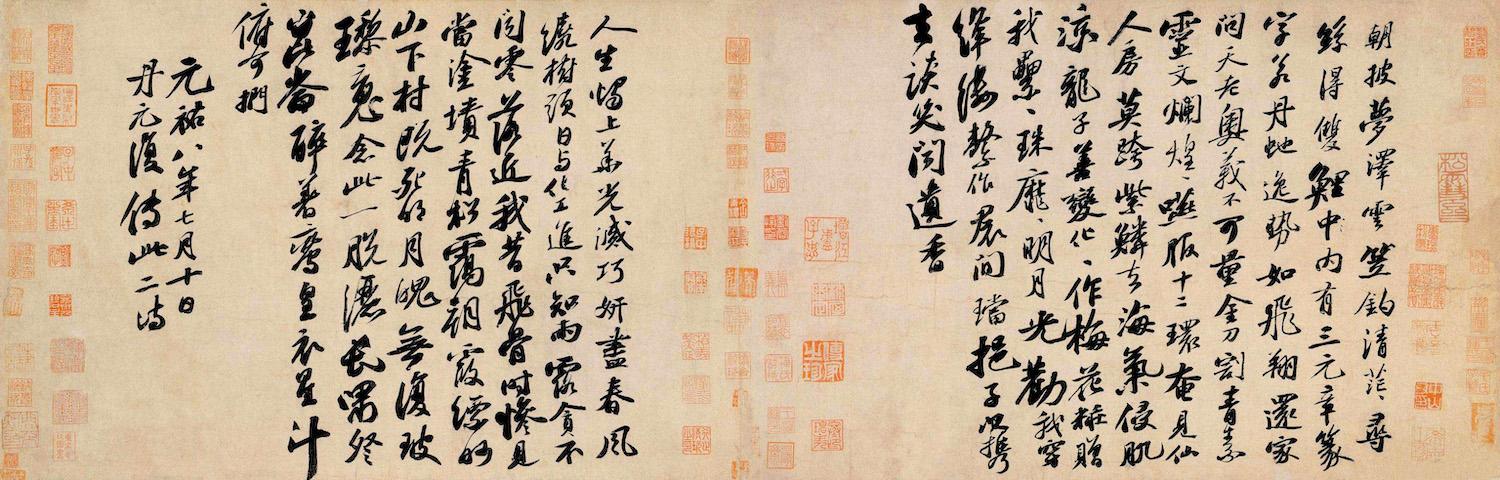 朝披夢澤雲笠釣清茫〻尋
絲得雙鯉中內有三元章篆
字若丹虵逸勢如飛翔還家
問天老奧義不可量金刀割青素
靈文爛煌〻嚥服十二環奄見仙
人房莫跨紫鱗去海氣侵肌
涼龍子善變化〻作梅花糚贈
我纍〻珠靡〻明月光勸我穿
絳縷繫作裙間璫挹子以攜
去談笑聞遺香
人生燭上華光滅巧妍盡春風
繞樹頭日與化工進只知雨露貪不
聞零落近我昔飛骨時慘見
當塗墳青松靄朝霞縹眇
山下村既死明月魄無復玻
瓈魂念此一脫灑長嘯登
崑崙醉著鸞皇衣星斗
俯可捫
元祐八年七月十日
丹元復傳此二詩